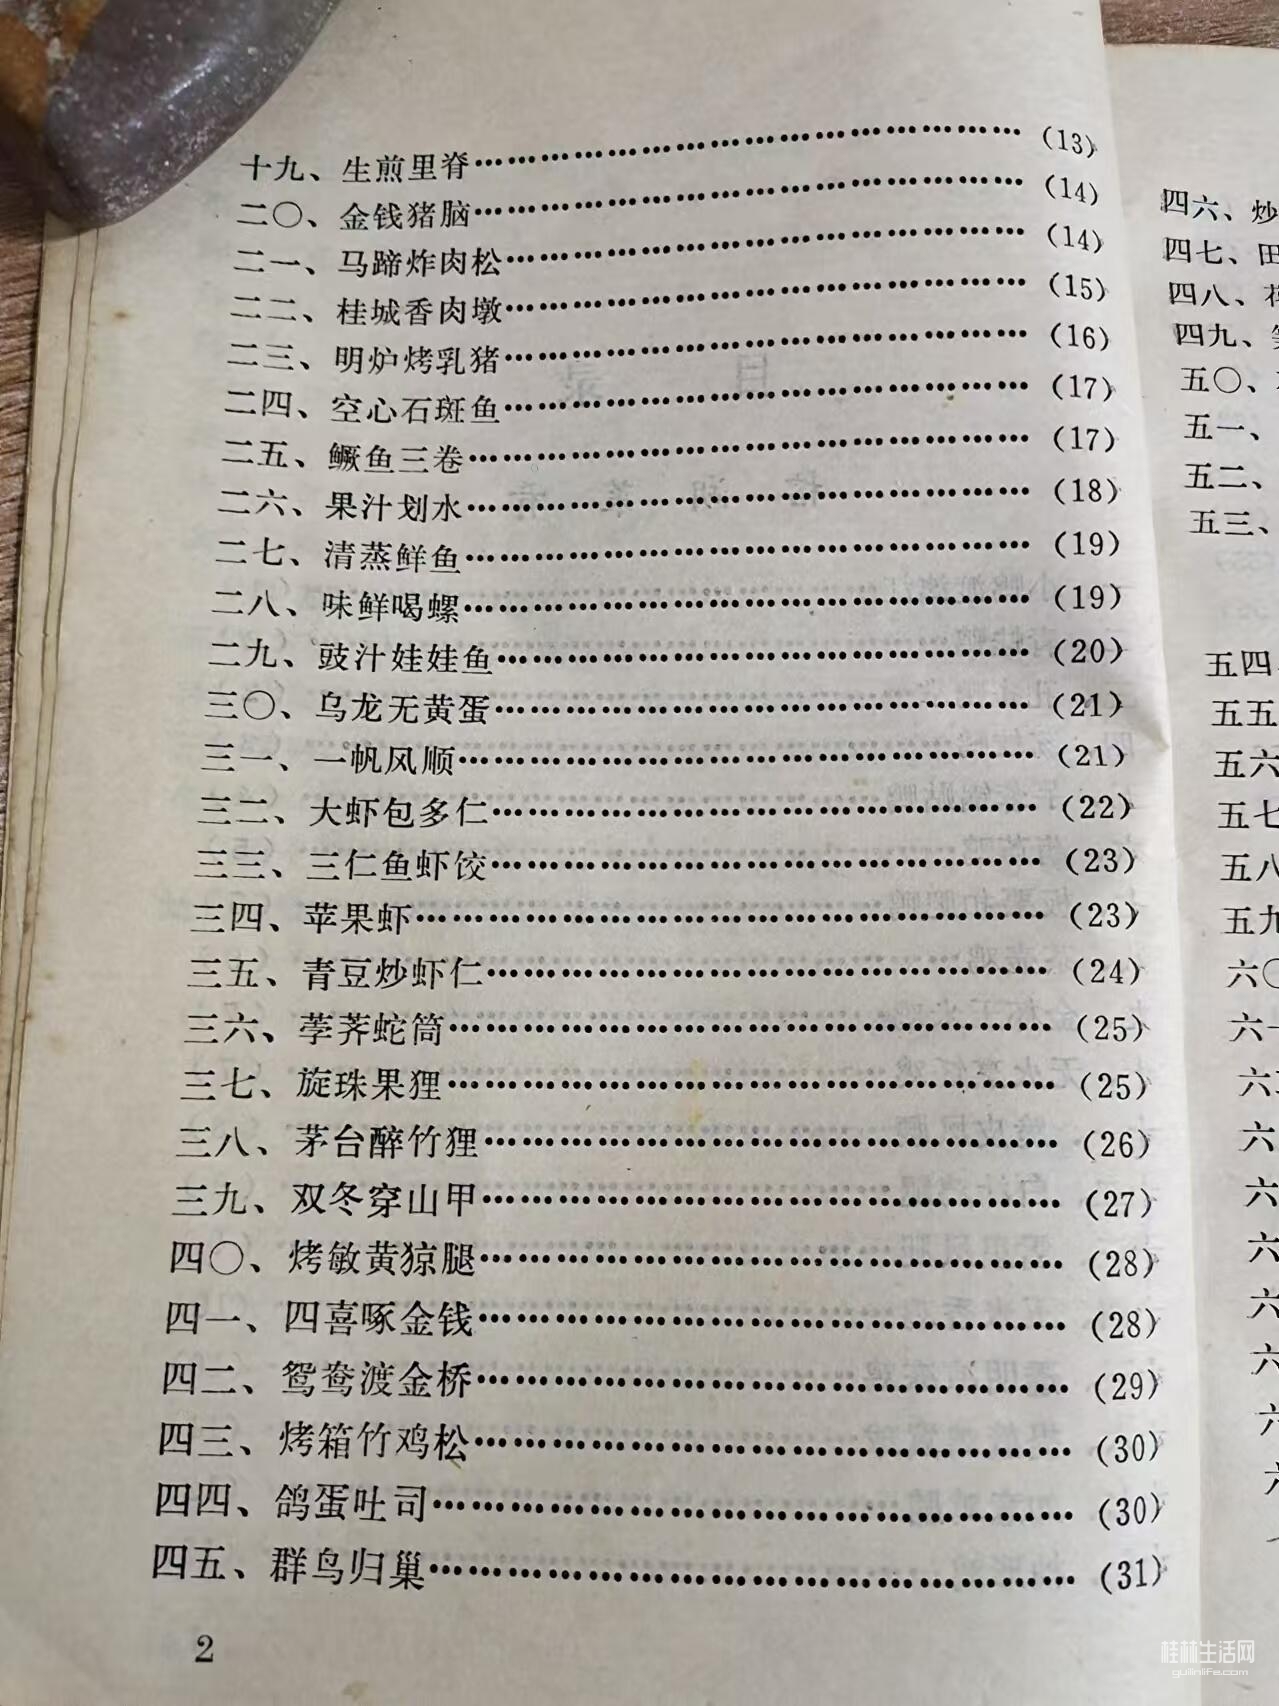 十九、生煎里脊……………………………………………(13)
二〇、金钱猪脑……………………………………………(14)
二一、马蹄炸肉松…………………………………………(14)
二二、桂城香肉墩…………………………………………(15)
二三、明炉烤乳猪…………………………………………(16)
二四、空心石斑鱼…………………………………………(17)
二五、鳜鱼三卷……………………………………………(17)
二六、果汁划水……………………………………………(18)
二七、清蒸鲜鱼……………………………………………(19)
二八、味鲜喝螺……………………………………………(19)
二九、豉汁娃娃鱼…………………………………………(20)
三〇、乌龙无黄蛋…………………………………………(21)
三一、一帆风顺……………………………………………(21)
三二、大虾包多仁…………………………………………(22)
三三、三仁鱼虾饺…………………………………………(23)
三四、苹果虾………………………………………………(23)
三五、青豆炒虾仁…………………………………………(24)
三六、荸荠蛇筒……………………………………………(25)
三七、旋珠果狸……………………………………………(25)
三八、茅台醉竹狸…………………………………………(26)
三九、双冬穿山甲…………………………………………(27)
四〇、烤敏黄猄腿…………………………………………(28)
四一、四喜啄金钱…………………………………………(28)
四二、鸳鸯渡金桥…………………………………………(29)
四三、烤箱竹鸡松…………………………………………(30)
四四、鸽蛋吐司……………………………………………(30)
四五、群鸟归巢……………………………………………(31)
2
四六、炒
四七、田
四八、
四九、
五〇、
五一、
五二、
五三、
五四、
五五
五六
五七
五八
五九
六〇
六一
六
六
六
六
六
六
六
桂林生活网
guilinlife.com